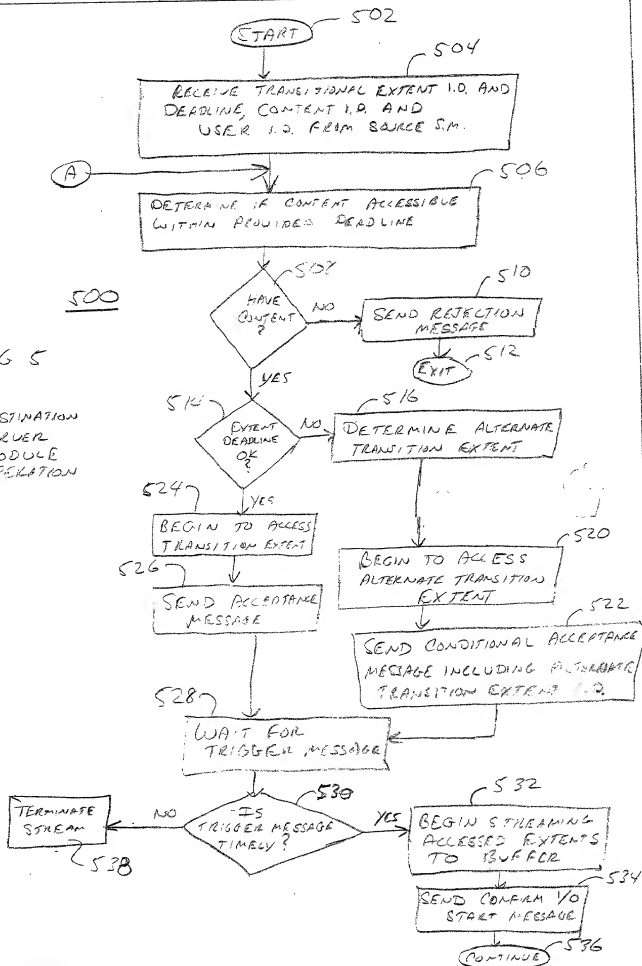 502
START
504
RECEIVE TRANSITIONAL EXTENT I.D. AND
DEADLINE, CONTENT I.D. AND
USER I.D. FROM SOURCE S.M.
A
506
DETERMINE IF CONTENT ACCESSIBLE
WITHIN PROVIDED DEADLINE
500
508
HAVE
CONTENT
?
NO
510
SEND REJECTION
MESSAGE
EXIT
512
YES
G 5
STINATION
RVER
ODULE
PERATION
514
EXTENT
DEADLINE
OK
?
NO
516
DETERMINE ALTERNATE
TRANSITION EXTENT
YES
524
BEGIN TO ACCESS
TRANSITION EXTENT
520
BEGIN TO ACCESS
ALTERNATE TRANSITION
EXTENT
526
SEND ACCEPTANCE
MESSAGE
522
SEND CONDITIONAL ACCEPTANCE
MESSAGE INCLUDING ALTERNATE
TRANSITION EXTENT I.D.
528
WAIT FOR
TRIGGER MESSAGE
530
IS
TRIGGER MESSAGE
TIMELY?
NO
TERMINATE
STREAM
538
YES
532
BEGIN STREAMING
ACCESSED EXTENTS
TO BUFFER
534
SEND CONFIRM I/O
START MESSAGE
536
CONTINUE